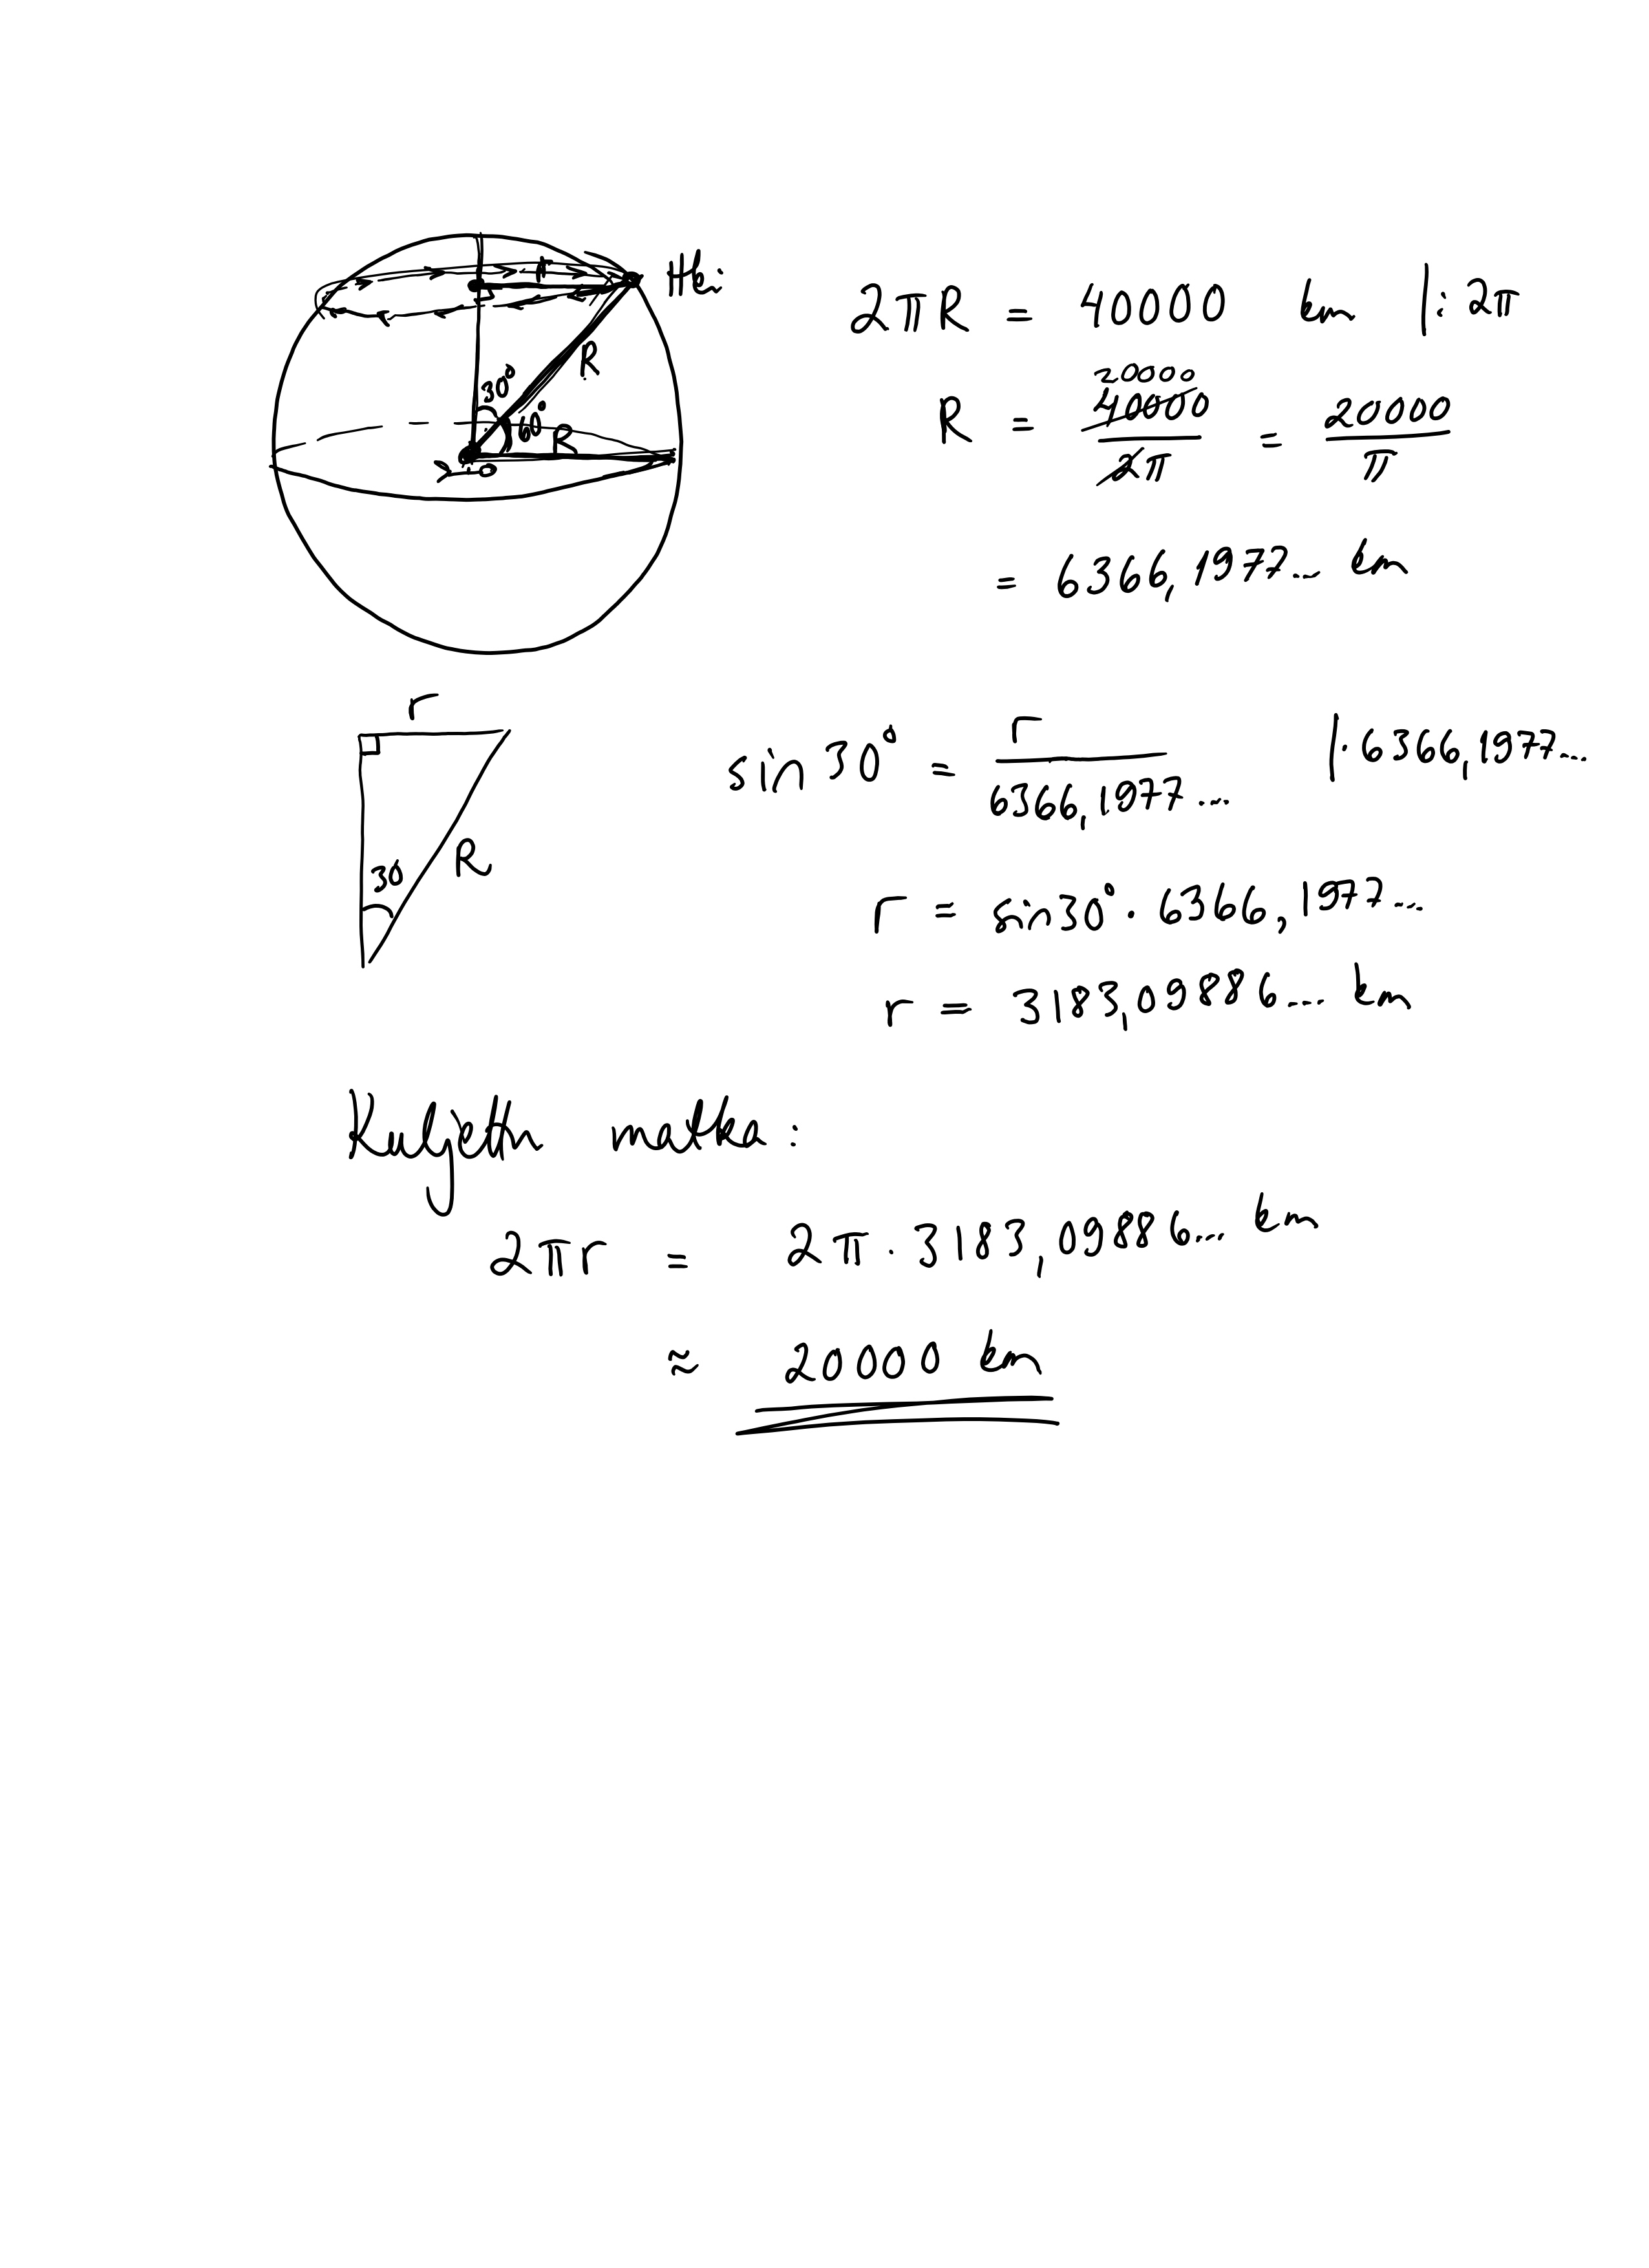 Hki
r
R
30°
60°
R
2πR = 40000 km |: 2π
20000
R = 40000/2π = 20000/π
= 6366,1977... km
r
30
R
sin 30° = r/6366,1977... | · 6366,1977...
r = sin30° · 6366,1977...
r = 3183,09886... km
Kuljettu matka:
2πr = 2π · 3183,09886... km
≈ 20000 km